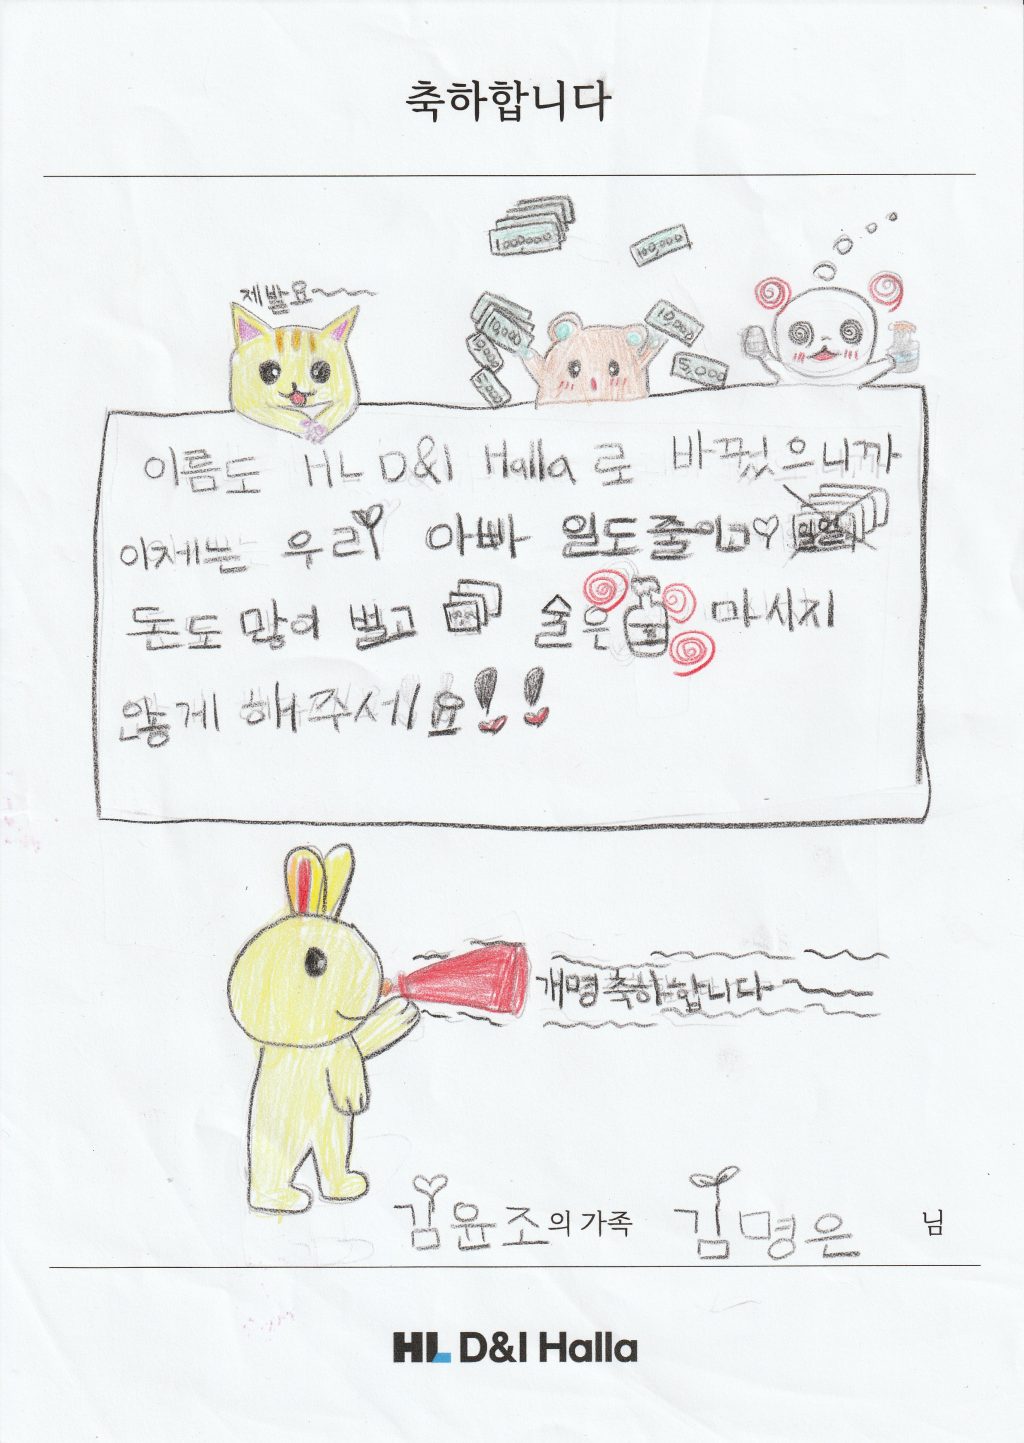 축하합니다
제발요~~~
1000000
100,000
10,000
10,000
10,000
5,000
500
이름도 HL D&I Halla 로 바꿨으니까
이제는 우리 아빠 일도줄이고♡
돈도 많이 벌고 술은 마시지
않게 해주세요!!
개명축하합니다~
김윤조의 가족 김명은 님
HL D&I Halla